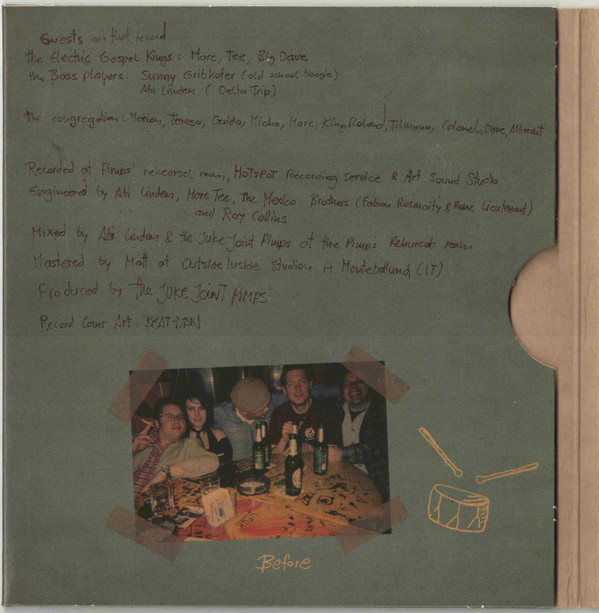 Guests on that record
the Electric Gospel Kings: Marc, Tee, Big Dave
the Bass players: Sunny Gribhofer (old school boogie)
Abi Linden (Delta Trip)
the congregation: Marion, Teresa, Guida, Micha, Marc, Roland, Tilmann, Colonel, Dave, Albrecht
Recorded at Pimps' rehearsal room, HOTSPOT Recording Service & Art Sound Studio
Engineered by Abi Linden, Marc Tee, The Mexico Brothers (Fabian & Rene Lieutenant)
and Roy Collins
Mixed by Abi Linden & the Juke Joint Pimps at the Pimps Rehearsal room
Mastered by Matt at Outside Inside Studion in Montebelluna (IT)
Produced by the JUKE JOINT PIMPS
Record Cover Art: BEAT-MAN
Before